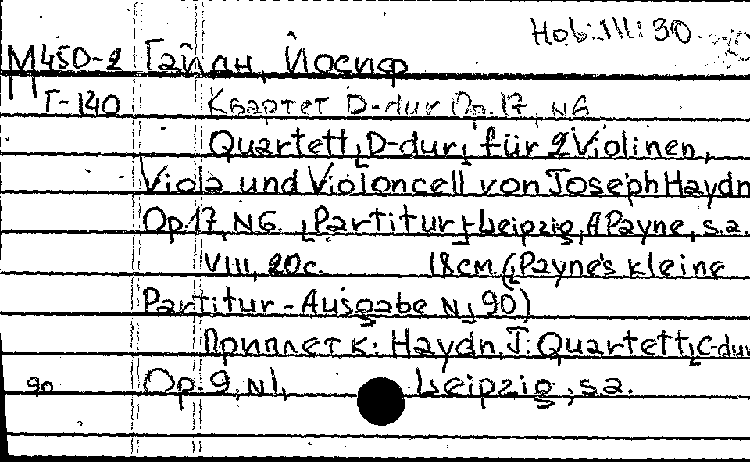 Hob: III: 30
М450-2 Гайдн, Йосиф
Г-140 Квартет D-dur Op. 17, N6
Quartett [D-dur] für 2 Violinen,
Viola und Violoncell von Joseph Haydn
Op. 17, N6. [Partitur] Leipzig, A Payne, s.a.
VIII, 20 с. 18 см. ([Payne's kleine
Partitur-Ausgabe N] 90)
Приплет к: Haydn, J: Quartett [C-dur
90 Op. 9, N1, Leipzig, s.a.